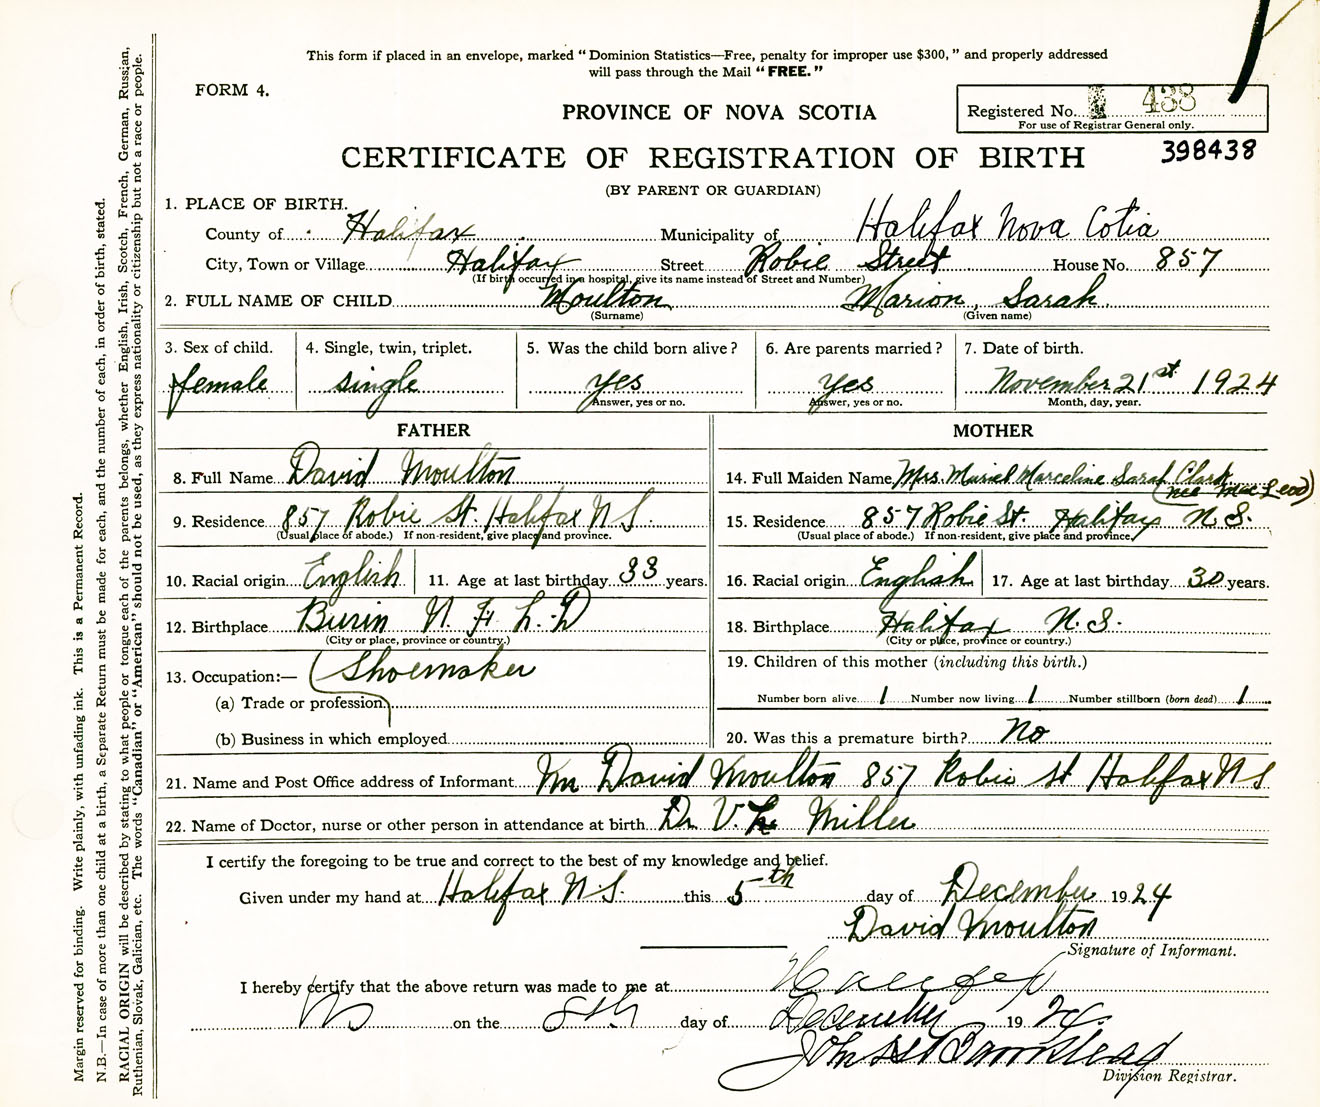 This form if placed in an envelope, marked "Dominion Statistics—Free, penalty for improper use $300," and properly addressed
will pass through the Mail "FREE."
FORM 4.
PROVINCE OF NOVA SCOTIA
Registered No. 438
For use of Registrar General only.
CERTIFICATE OF REGISTRATION OF BIRTH
398438
(BY PARENT OR GUARDIAN)
1. PLACE OF BIRTH.
County of Halifax Municipality of Halifax Nova Cotia
City, Town or Village Halifax Street Robie Street House No. 857
(If birth occurred in a hospital, give its name instead of Street and Number)
2. FULL NAME OF CHILD Moulton Marion, Sarah
(Surname) (Given name)
3. Sex of child. 4. Single, twin, triplet. 5. Was the child born alive? 6. Are parents married? 7. Date of birth.
female single yes yes November 21st 1924
Answer, yes or no. Answer, yes or no. Month, day, year.
FATHER MOTHER
8. Full Name David Moulton 14. Full Maiden Name Mrs. Muriel Marceline Sarah Clark
(nee MacLeod)
9. Residence 857 Robie St. Halifax N S. 15. Residence 857 Robie St. Halifax N. S.
(Usual place of abode.) If non-resident, give place and province. (Usual place of abode.) If non-resident, give place and province.
10. Racial origin English 11. Age at last birthday 33 years. 16. Racial origin English 17. Age at last birthday 30 years.
12. Birthplace Burin N. F. L. D 18. Birthplace Halifax N. S.
(City or place, province or country.) (City or place, province or country.)
13. Occupation:— Shoemaker 19. Children of this mother (including this birth.)
(a) Trade or profession Number born alive 1 Number now living 1 Number stillborn (born dead) 1
(b) Business in which employed 20. Was this a premature birth? No
21. Name and Post Office address of Informant Mr David Moulton 857 Robie st Halifax N S
22. Name of Doctor, nurse or other person in attendance at birth Dr V. Miller
I certify the foregoing to be true and correct to the best of my knowledge and belief.
Given under my hand at Halifax N. S. this 5th day of December 1924
David Moulton
Signature of Informant.
I hereby certify that the above return was made to me at Halifax
on the 8th day of December 1924.
John Barnstead
Division Registrar.
Margin reserved for binding. Write plainly, with unfading ink. This is a Permanent Record.
N.B.—In case of more than one child at a birth, a Separate Return must be made for each, and the number of each, in order of birth, stated.
RACIAL ORIGIN will be described by stating to what people or tongue each of the parents belongs, whether English, Irish, Scotch, French, German, Russian,
Ruthenian, Slovak, Galician, etc. The words "Canadian" or "American" should not be used, as they express nationality or citizenship but not a race or people.